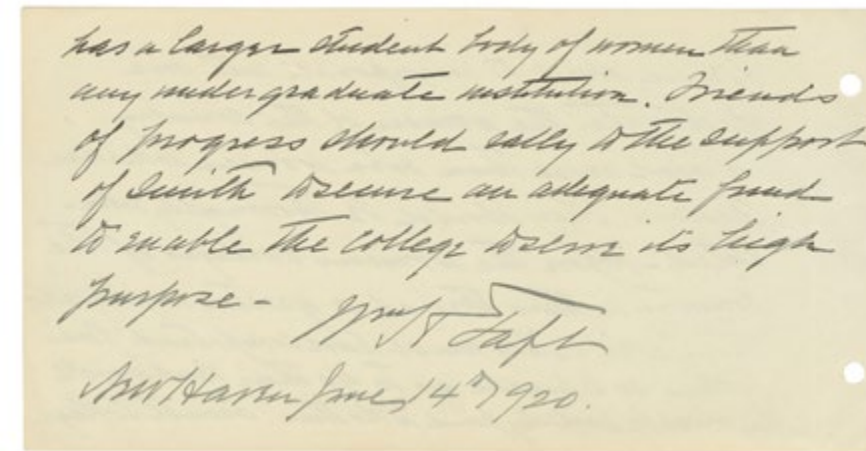 has a larger student body of women than
any undergraduate institution. Friends
of progress should rally to the support
of Smith to secure an adequate fund
to enable the college to serve its high
purpose -
Wm H Taft
New Haven June 14th 1920.